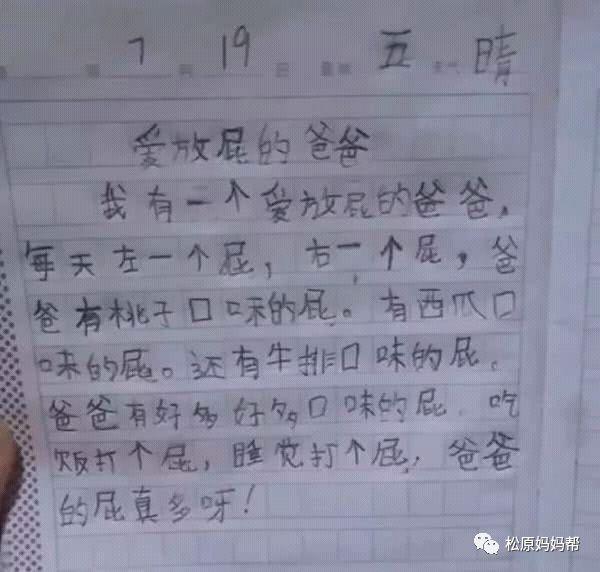 7 月 19 日 星期 五 天气 晴
爱放屁的爸爸
我有一个爱放屁的爸爸,
每天左一个屁,右一个屁,爸
爸有桃子口味的屁。有西瓜口
味的屁。还有牛排口味的屁。
爸爸有好多好多口味的屁.吃
饭打个屁,睡觉打个屁,爸爸
的屁真多呀!
松原妈妈帮